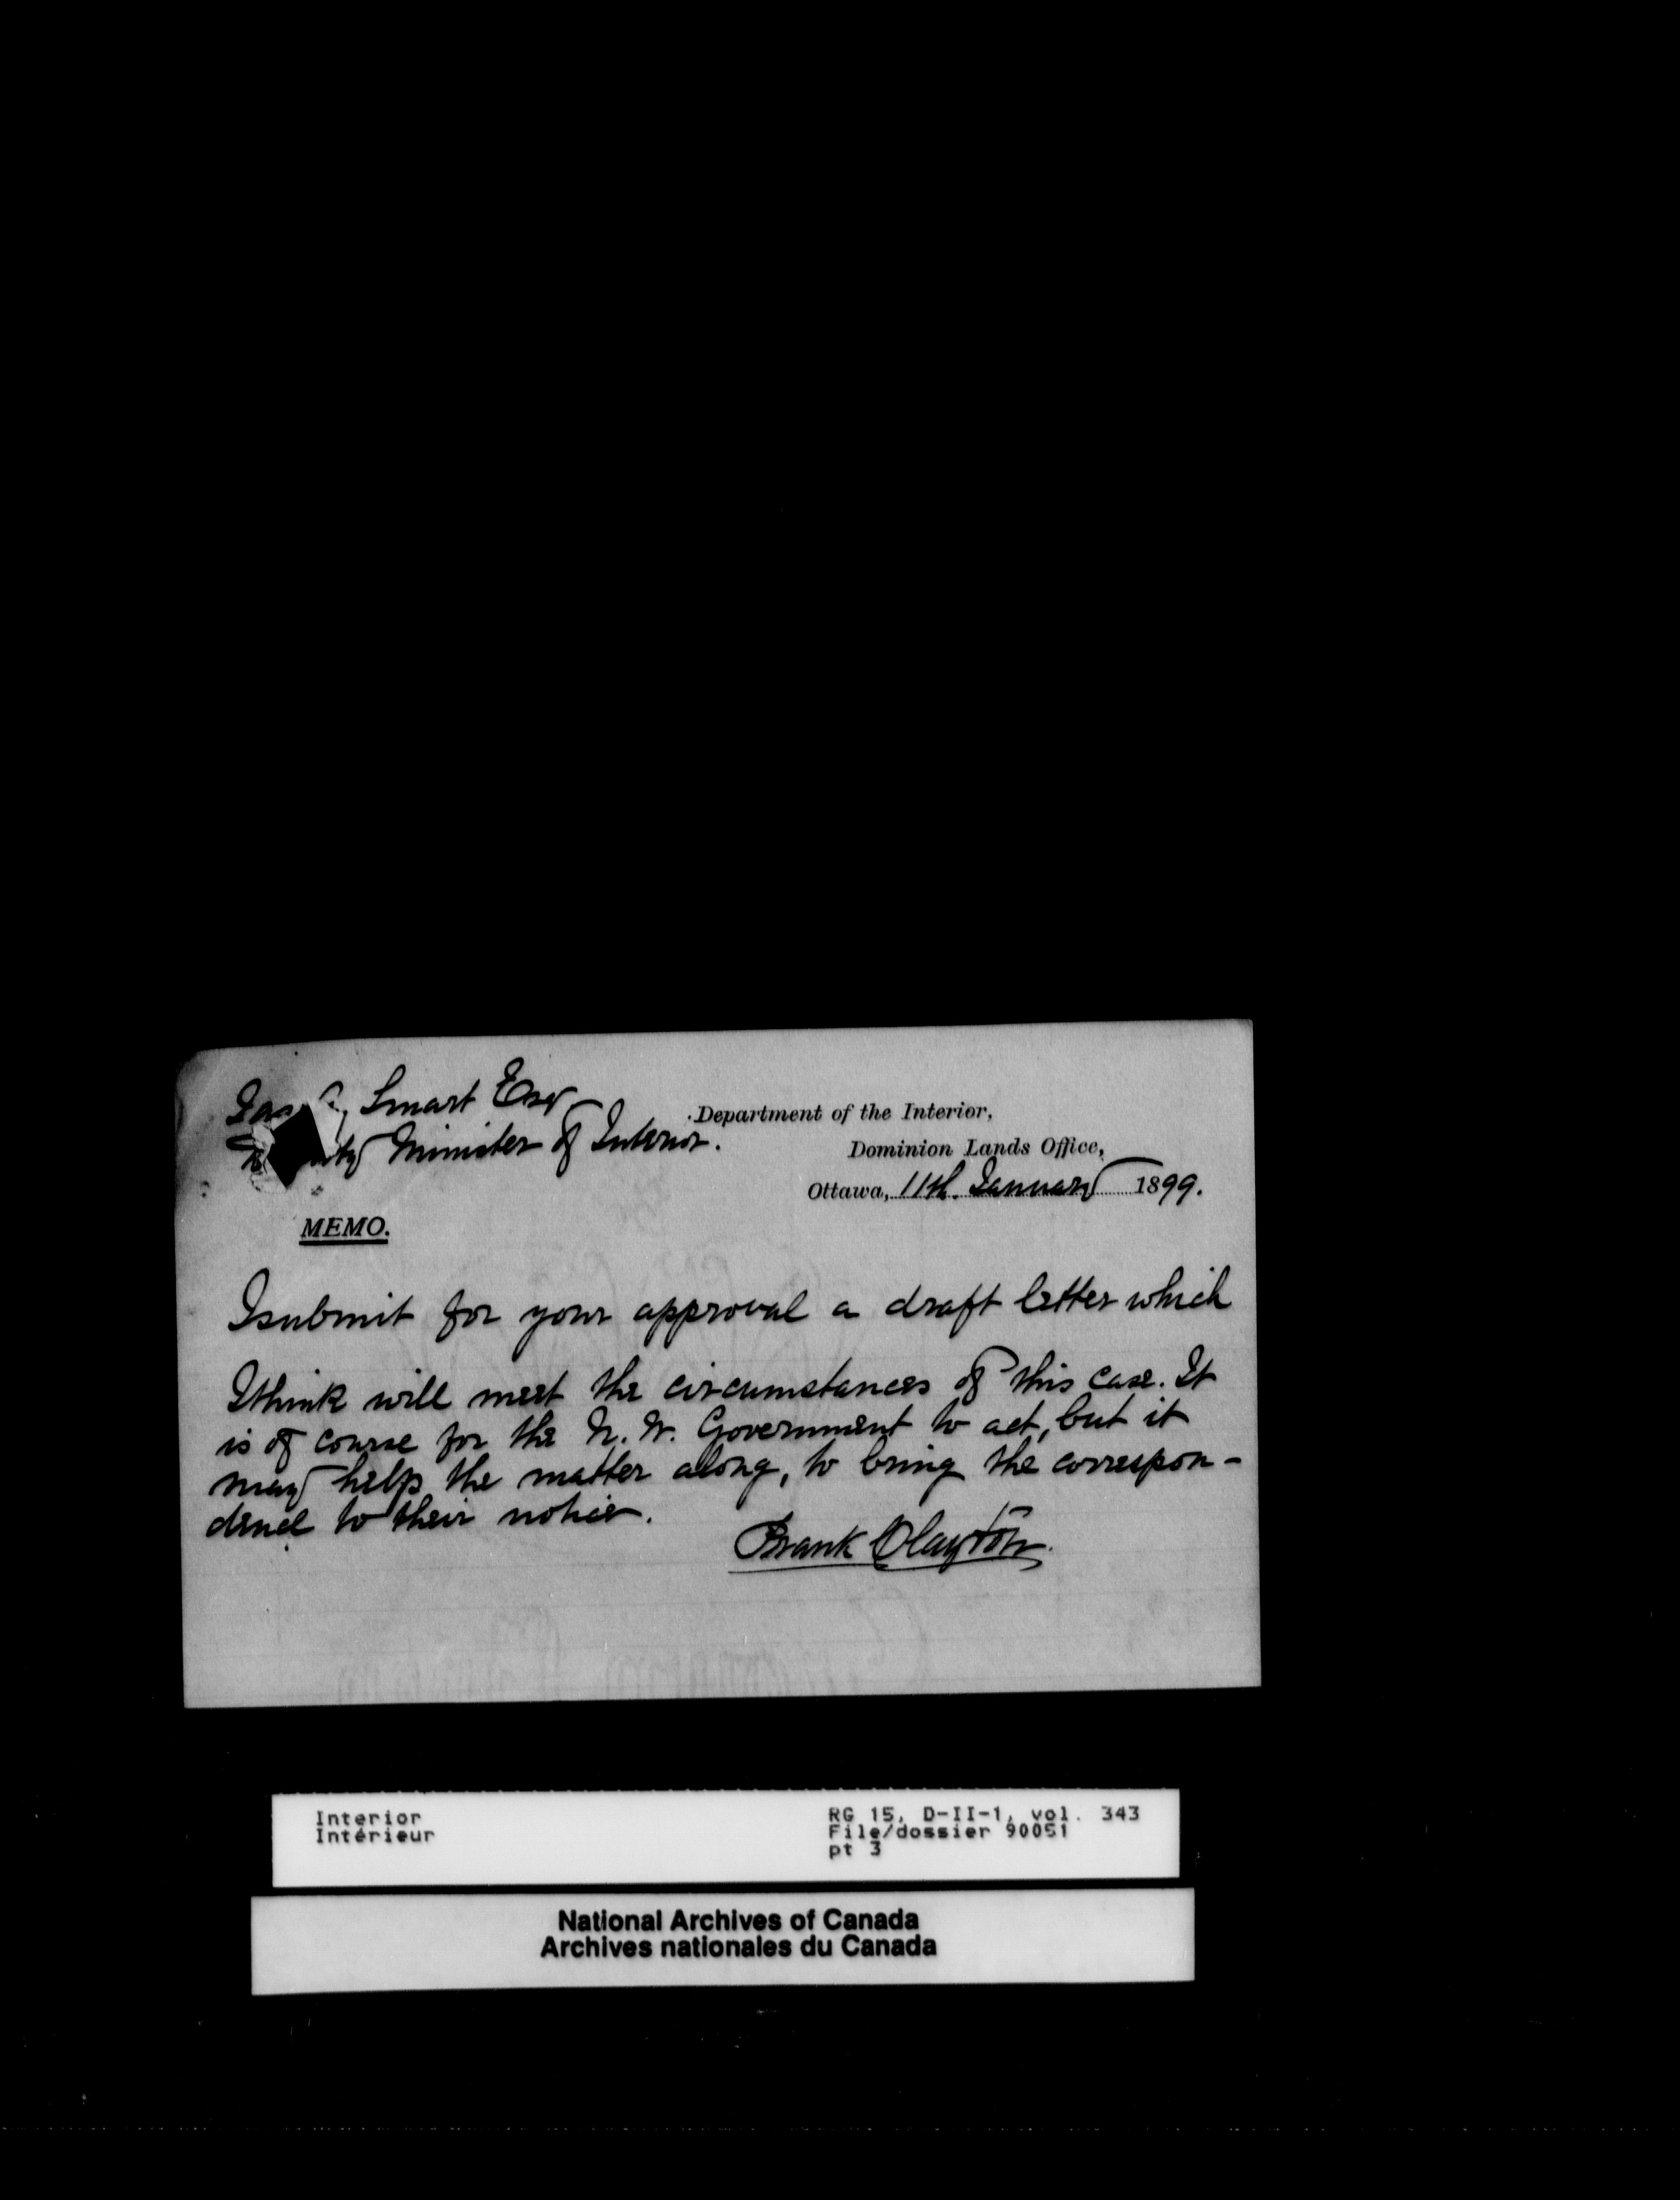 Jas A. Smart Esq
Deputy Minister of Interior.
Department of the Interior,
Dominion Lands Office,
Ottawa, 11th. January 1899.
MEMO.
I submit for your approval a draft letter which
I think will meet the circumstances of this case. It
is of course for the N. W. Government to act, but it
may help the matter along, to bring the correspon-
dence to their notice.
Frank Clayton
Interior
Intérieur
RG 15, D-II-1, vol. 343
File/dossier 90051
pt 3
National Archives of Canada
Archives nationales du Canada